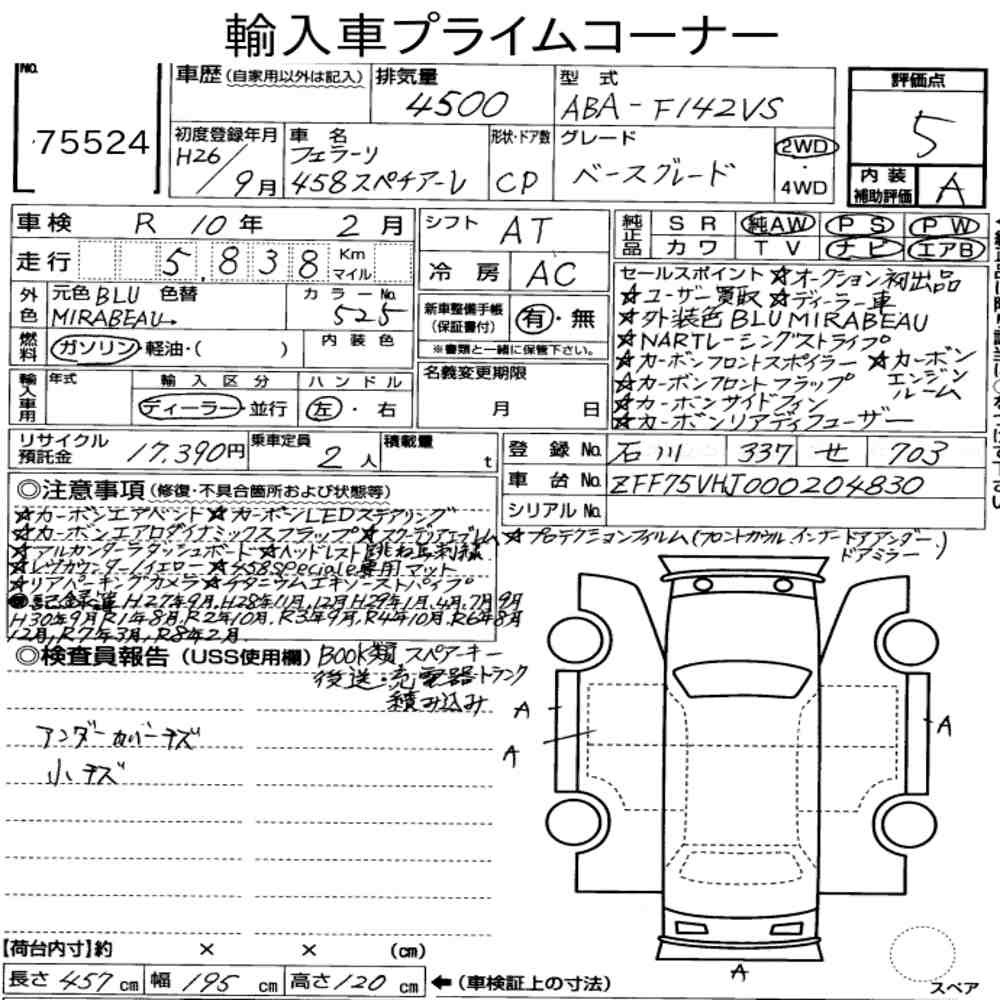 輸入車プライムコーナー
NO.
75524
車歴 (自家用以外は記入)
排気量
4500
型式
ABA-F142VS
評価点
5
初度登録年月
H26/9月
車名
フェラーリ
458スペチアーレ
形状・ドア数
CP
グレード
ベースグレード
2WD
・
4WD
内装
補助評価
A
車検 R 10年 2月
シフト AT
純正品 SR 純AW PS PW
カワ TV ナビ エアB
走行 5,838 Km
マイル
冷房 AC
外色 元色 BLU 色替
MIRABEAU→
カラーNo.
525
新車整備手帳
(保証書付)
有・無
※書類と一緒に保管下さい。
燃料 ガソリン・軽油・( )
内装色
輸入車用 年式
輸入区分
ディーラー・並行
ハンドル
左・右
名義変更期限
月 日
セールスポイント ☆オークション初出品
☆ユーザー買取 ☆ディーラー車
☆外装色BLU MIRABEAU
☆NARTレーシングストライプ
☆カーボンフロントスポイラー ☆カーボン
エンジン
ルーム
☆カーボンフロントフラップ
☆カーボンサイドフィン
☆カーボンリアディフューザー
リサイクル
預託金 17.390円
乗車定員
2人
積載量
t
登録No. 石川 337 せ 703
車台No. ZFF75VHJ000204830
シリアルNo.
◎注意事項 (修復・不具合箇所および状態等)
☆カーボンエアベント ☆カーボンLEDステアリング
☆カーボンエアロダイナミックスフラップ ☆スクーデリアエンブレム
☆アルカンターラダッシュボード ☆ヘッドレスト跳ね馬刺繍
☆プロテクションフィルム(フロントカウル インナードアアンダー
ドアミラー)
☆レヴカウンター/イエロー ☆458Speciale専用マット
☆リアパーキングカメラ ☆チタニウムエキゾーストパイプ
記録簿 H.27年9月,H28年11月,12月 H29年1月,4月,7月9月
H30年9月 R1年8月,R2年10月,R3年9月,R4年10月,R6年8月
12月,R7年3月,R8年2月
◎検査員報告 (USS使用欄) BOOK類 スペアーキー
後送・充電器トランク
積み込み
アンダーカバーキズ
小キズ
A
A
A
A
【荷台内寸】約 × × (cm)
長さ 457cm 幅 195cm 高さ 120cm ←(車検証上の寸法)
スペア